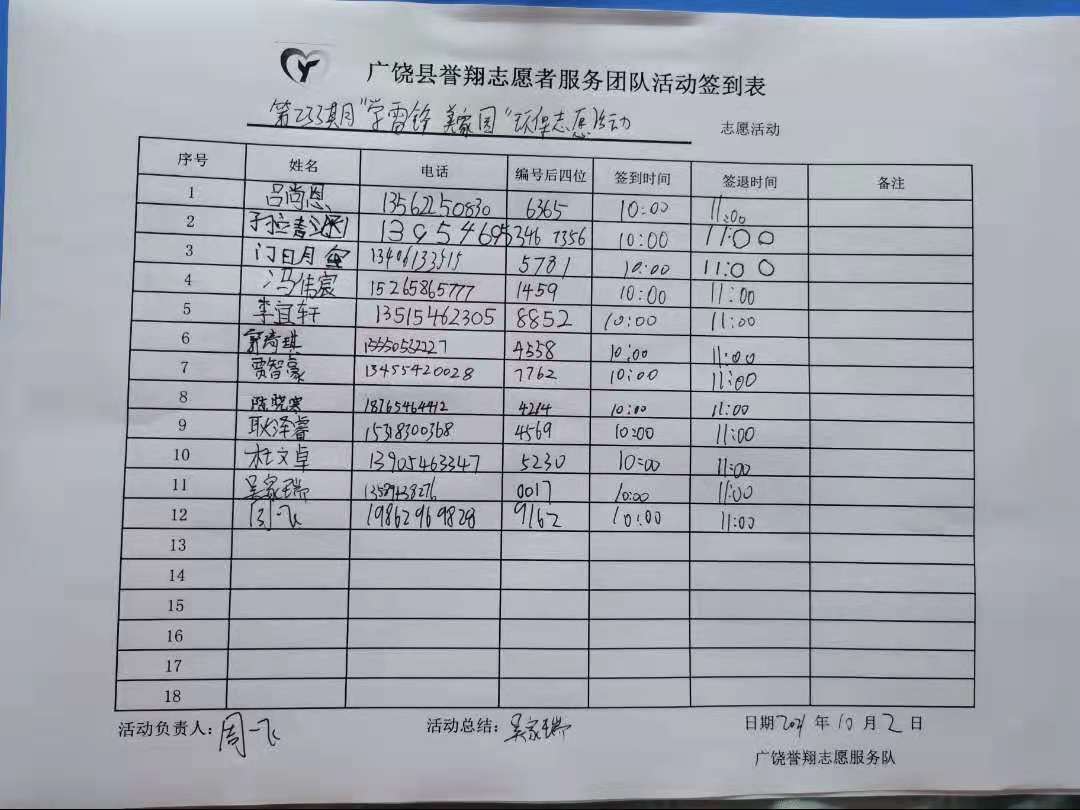 广饶县誉翔志愿者服务团队活动签到表
第233期“学雷锋 美家园”环保志愿活动 志愿活动
序号 姓名 电话 编号后四位 签到时间 签退时间 备注
1 吕尚恩 13562250830 6365 10:00 11:00
2 13954695346 7356 10:00 11:00
3 5781 10:00 11:00
4 冯伟宸 15265865777 1459 10:00 11:00
5 李宜轩 13515462305 8852 10:00 11:00
6 4558 10:00 11:00
7 贾智豪 13455420028 7762 10:00 11:00
8 陈晓寒 18765464412 4214 10:00 11:00
9 耿泽睿 15318300368 4569 10:00 11:00
10 杜文卓 13905463347 5230 10:00 11:00
11 吴家瑞 13589438276 0017 10:00 11:00
12 周一飞 19862969828 9162 10:00 11:00
13
14
15
16
17
18
活动负责人:周一飞 活动总结:吴家瑞 日期2021年10月2日
广饶誉翔志愿服务队